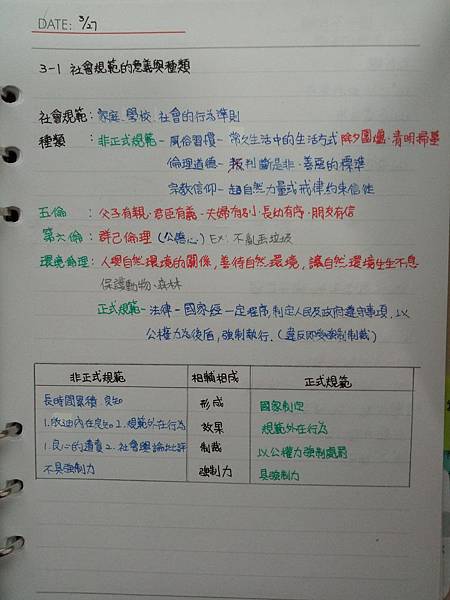 DATE: 3/27
3-1 社會規範的意義與種類
社會規範：家庭、學校、社會的行為準則
種類：非正式規範-風俗習慣-常久生活中的生活方式 除夕圍爐、清明掃墓
倫理道德-判斷是非、善惡的標準
宗教信仰-超自然力量或戒律約束信徒
五倫：父子有親、君臣有義、夫婦有別、長幼有序、朋友有信
第六倫：群己倫理(公德心) EX：不亂丟垃圾
環境倫理：人與自然環境的關係，善待自然環境，讓自然環境生生不息
保護動物、森林
正式規範-法律-國家經一定程序，制定人民及政府遵守事項，以
公權力為後盾，強制執行。(違反即受強制制裁)
非正式規範 相輔相成 正式規範
長時間累積 良知 形成 國家制定
1.啟迪內在良知 2.規範外在行為 效果 規範外在行為
1.良心的遣責 2.社會輿論批評 制裁 以公權力強制處罰
不具強制力 強制力 具強制力